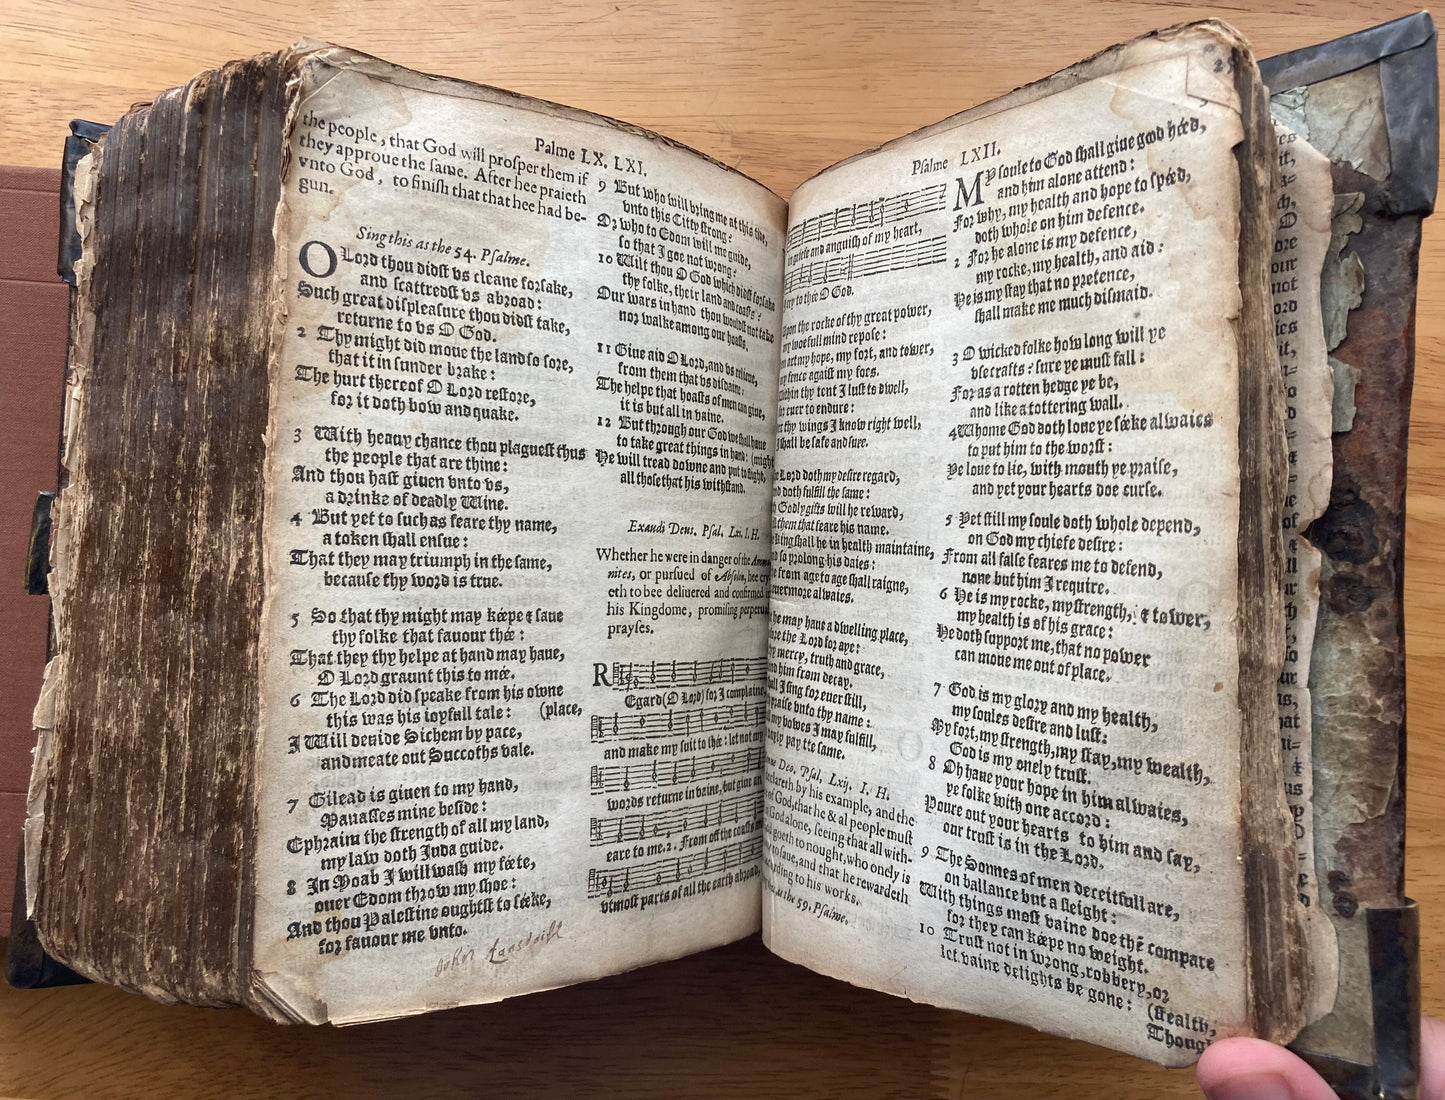 Psalme LX. LXI.
the people, that God will prosper them if
they approue the same. After hee praieth
vnto God, to finish that that hee had be-
gun.
Sing this as the 54. Psalme.
O Lord thou didst vs cleane forsake,
and scattredst vs abroad:
Such great displeasure thou didst take,
returne to vs O God.
2 Thy might did moue the land so sore,
that it in sunder brake:
The hurt thereof O Lord restore,
for it doth bow and quake.
3 With heauy chance thou plaguest thus
the people that are thine:
And thou hast giuen vnto vs,
a drinke of deadly Wine.
4 But yet to such as feare thy name,
a token shall ensue:
That they may triumph in the same,
because thy word is true.
5 So that thy might may kéepe & saue
thy folke that fauour thée:
That they thy helpe at hand may haue,
O Lord graunt this to mée.
6 The Lord did speake from his owne
this was his ioyfull tale: (place,
I Will deuide Sichem by pace,
and meate out Succoths vale.
7 Gilead is giuen to my hand,
Manasses mine beside:
Ephraim the strength of all my land,
my law doth Juda guide.
8 In Moab I will wash my féete,
ouer Edom throw my shoe:
And thou Palestine oughtst to séeke,
for fauour me vnto.
John
9 But who will bring me at this tide,
vnto this Citty strong?
Or who to Edom will me guide,
so that I goe not wrong?
10 Wilt thou O God which didst forsake
thy folke, their land and coasts?
Our wars in hand thou wouldst not take
nor walke among our hoasts.
11 Giue aid O Lord, and vs relieue,
from them that vs disdaine:
The helpe that hoasts of men can giue,
it is but all in vaine.
12 But through our God we shall haue
to take great things in hand: (might
He will tread downe and put to flight,
all those that his withstand.
Exaudi Deus. Psal. Lxi. I. H.
Whether he were in danger of the
nites, or pursued of Absolon, hee cry
eth to bee deliuered and confirmed in
his Kingdome, promising perpetual
prayses.
REgard (O Lord) for I complaine,
and make my suit to thée: let not my
words returne in vaine, but giue an
eare to me. 2. From off the coasts and
vtmost parts of all the earth abroad,
Psalme LXII.
in griefe and anguish of my heart,
cry to thée O God.
Upon the rocke of thy great power,
my woefull mind repose:
art my hope, my fort, and tower,
my fence against my foes.
Within thy tent I lust to dwell,
for euer to endure:
thy wings I know right well,
I shall be safe and sure.
The Lord doth my desire regard,
and doth fulfill the same:
With Godly gifts will he reward,
all them that feare his name.
king shall he in health maintaine,
and so prolong his daies:
from age to age shall raigne,
euermore alwaies.
he may haue a dwelling place,
before the Lord for aye:
thy mercy, truth and grace,
him from decay.
shall I sing for euer still,
praise vnto thy name:
all my vowes I may fulfill,
daily pay the same.
Deo. Psal. Lxij. I. H.
declareth by his example, and the
of God, that he & al people must
in God alone, seeing that all with-
goeth to nought, who only is
to saue, and that he rewardeth
according to his works.
this as the 59. Psalme.
MY soule to God shall giue good héed,
and him alone attend:
For why, my health and hope to spéed,
doth whole on him defence.
2 For he alone is my defence,
my rocke, my health, and aid:
He is my stay that no pretence,
shall make me much dismaid.
3 O wicked folke how long will ye
vse crafts? sure ye must fall:
For as a rotten hedge ye be,
and like a tottering wall.
4 Whome God doth loue ye séeke alwaies
to put him to the worst:
Ye loue to lie, with mouth ye praise,
and yet your hearts doe curse.
5 Yet still my soule doth whole depend,
on God my chiefe desire:
From all false feares me to defend,
none but him I require.
6 He is my rocke, my strength, & tower,
my health is of his grace:
He doth support me, that no power
can moue me out of place.
7 God is my glory and my health,
my soules desire and lust:
My fort, my strength, my stay, my wealth,
God is my onely trust.
8 Oh haue your hope in him alwaies,
ye folke with one accord:
Poure out your hearts to him and say,
our trust is in the Lord.
9 The Sonnes of men deceitfull are,
on ballance but a sleight:
With things most vaine doe thē compare
for they can kéepe no weight.
10 Trust not in wrong, robbery, or
let vaine delights be gone: (stealth,
Though